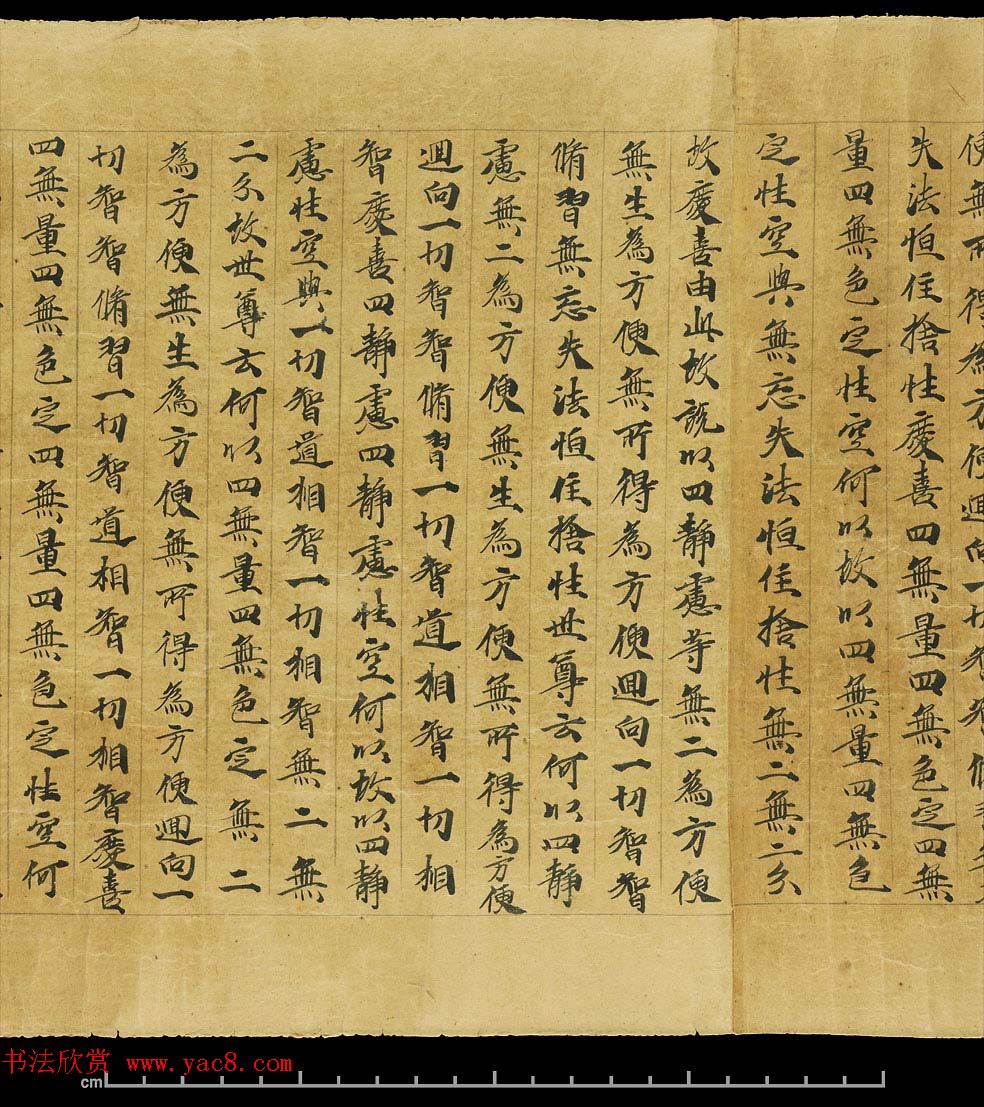 便無所得為方便迴向一切智智脩習無忘
失法恒住捨性慶喜四無量四無色定四無
量四無色定性空何以故以四無量四無色
定性空與無忘失法恒住捨性無二無二分
故慶喜由此故說以四靜慮等無二為方便
無生為方便無所得為方便迴向一切智智
脩習無忘失法恒住捨性世尊云何以四靜
慮無二為方便無生為方便無所得為方便
迴向一切智智脩習一切智道相智一切相
智慶喜四靜慮四靜慮性空何以故以四靜
慮性空與一切智道相智一切相智無二無
二分故世尊云何以四無量四無色定無二
為方便無生為方便無所得為方便迴向一
切智智脩習一切智道相智一切相智慶喜
四無量四無色定四無量四無色定性空何
书法欣赏 www.yac8.com
cm